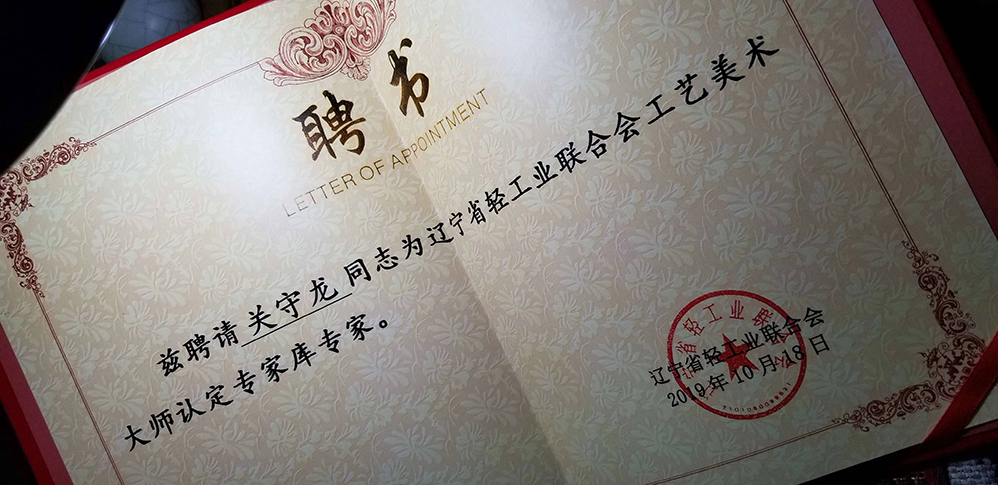 聘书
LETTER OF APPOINTMENT
兹聘请关守龙同志为辽宁省轻工业联合会工艺美术
大师认定专家库专家。
辽宁省轻工业联合会
2019年10月18日